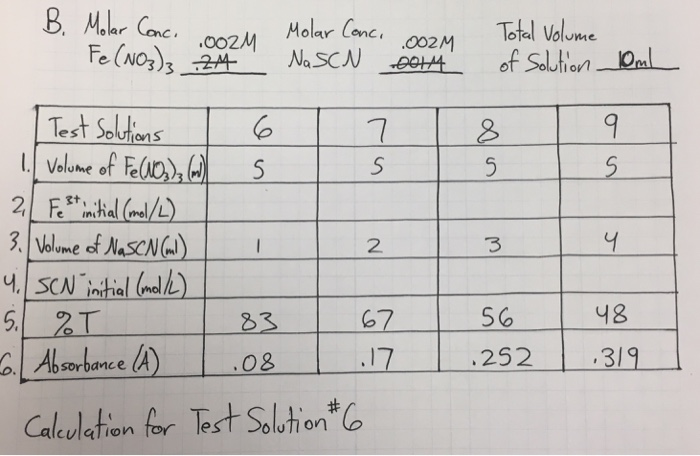 B. Molar Conc. Fe(NO3)3 .002M .2M Molar Conc. NaSCN .002M .001M Total Volume of Solution 10ml
Test Solutions 6 7 8 9
1. Volume of Fe(NO3)3 (ml) 5 5 5 5
2. Fe3+ initial (mol/L)
3. Volume of NaSCN (ml) 1 2 3 4
4. SCN- initial (mol/L)
5. %T 83 67 56 48
6. Absorbance (A) .08 .17 .252 .319
Calculation for Test Solution #6